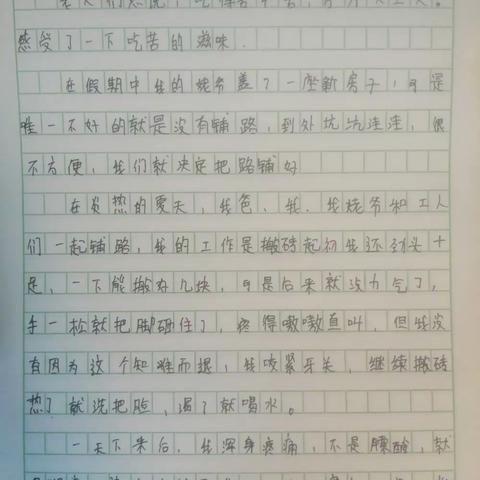 老人们总说，吃得苦中苦，方为人上人。
感受了一下吃苦的滋味.
在假期中我的姥爷盖了一座新房子，可是
唯一不好的就是没有铺路，到处坑坑洼洼，很
不方便，我们就决定把路铺好
在炎热的夏天，我爸、我、我姥爷和工人
们一起铺路，我的工作是搬砖起初我还劲头十
足，一下能搬好几块，可是后来就没力气了，
手一松就把脚砸住了，疼得嗷嗷直叫，但我没
有因为这个知难而退，我咬紧牙关，继续搬砖
热了就洗把脸，渴了就喝水。
一天下来后，我浑身疼痛，不是腰酸，就